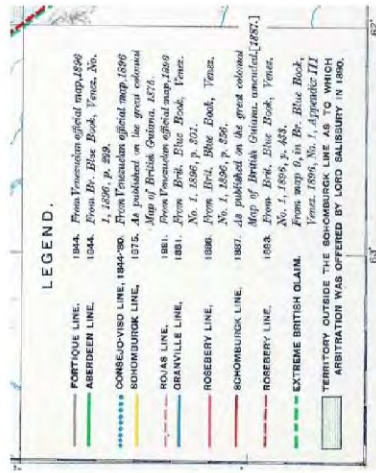 LEGEND.
FORTIQUE LINE, 1844. From Venezuelan official map, 1896
ABERDEEN LINE, 1844. From Br. Blue Book, Venez. No.
1, 1896, p. 299.
CONSEJO-VISO LINE, 1844-'90. From Venezuelan official map, 1896
SCHOMBURGK LINE, 1875. As published on the great colonial
Map of British Guiana, 1875.
ROJAS LINE, 1881. From Venezuelan official map, 1896
GRANVILLE LINE, 1881. From Brit. Blue Book, Venez.
No. 1, 1896, p. 301.
ROSEBERY LINE, 1886. From Brit. Blue Book, Venez.
No. 1, 1896, p. 396.
SCHOMBURGK LINE, 1887. As published on the great colonial
Map of British Guiana, amended, [1887.]
ROSEBERY LINE, 1893. From Brit. Blue Book, Venez.
No. 1, 1896, p. 433.
EXTREME BRITISH CLAIM. From map 9, in Br. Blue Book,
Venez. 1896, No. 1, Appendix III
TERRITORY OUTSIDE THE SCHOMBURGK LINE AS TO WHICH
ARBITRATION WAS OFFERED BY LORD SALISBURY IN 1890.
63°
62°